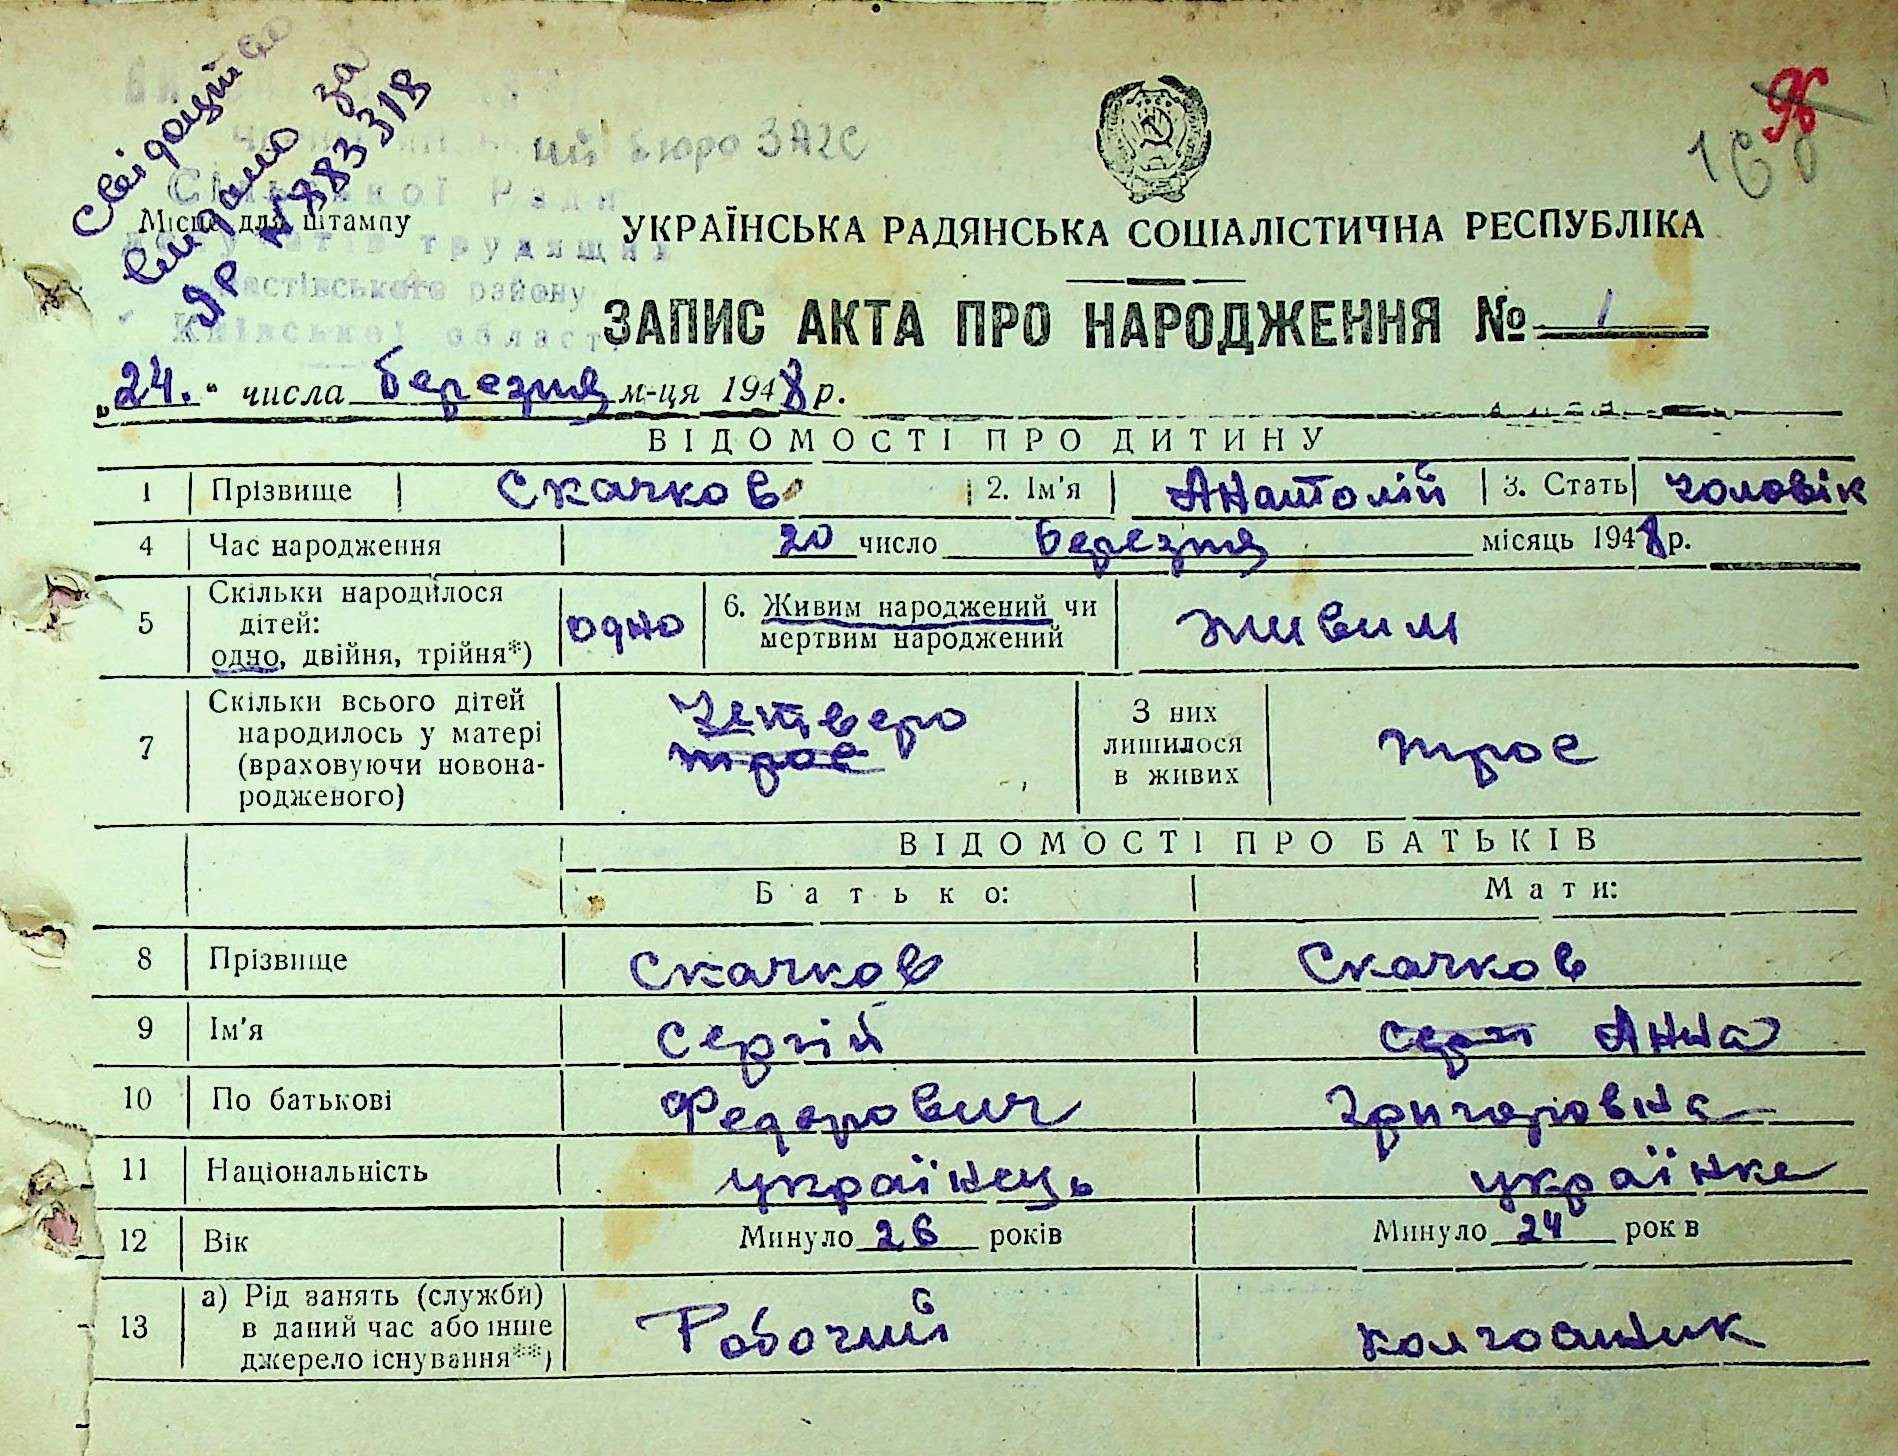 Свідоцтво
видано за
ЯР №883318
ий бюро ЗАГС
Сільської Ради
депутатів трудящих
Фастівського району
Київської області
Місце для штампу
96
160
УКРАЇНСЬКА РАДЯНСЬКА СОЦІАЛІСТИЧНА РЕСПУБЛІКА
ЗАПИС АКТА ПРО НАРОДЖЕННЯ № 1
„24." числа березня м-ця 1948 р.
ВІДОМОСТІ ПРО ДИТИНУ
1 Прізвище Скачков 2. Ім'я Анатолій 3. Стать чоловік
4 Час народження 20 число березня місяць 1948 р.
5 Скільки народилося дітей: одно, двійня, трійня*) одно 6. Живим народжений чи мертвим народжений живим
7 Скільки всього дітей народилось у матері (враховуючи новонародженого) Четверо троє З них лишилося в живих троє
ВІДОМОСТІ ПРО БАТЬКІВ
Батько: Мати:
8 Прізвище Скачков Скачков
9 Ім'я Сергій Анна
10 По батькові Федорович Григоровна
11 Національність українець українке
12 Вік Минуло 26 років Минуло 24 рок в
13 а) Рід занять (служби) в даний час або інше джерело існування**) Робочий колгоспник